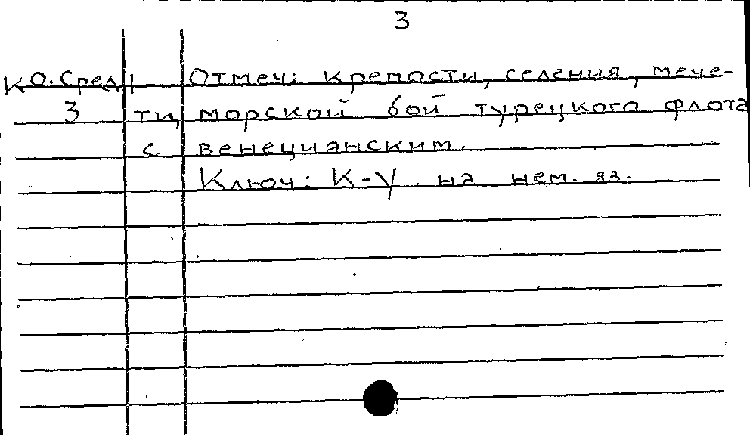 3
КО.Сред| Отмеч: крепости, селения, мече-
3 ти, морской бой турецкого флота
с венецианским.
Ключ: К-V на нем. яз.